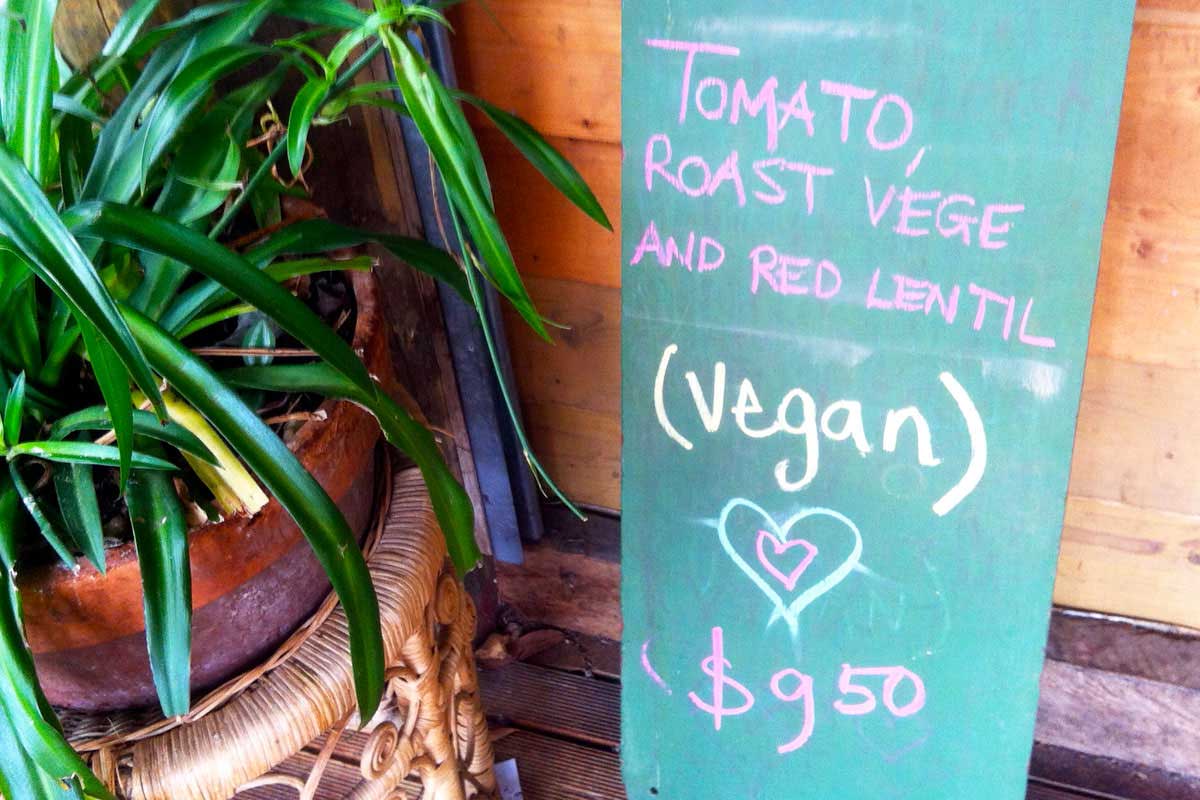 TOMATO,
ROAST VEGE
AND RED LENTIL
(vegan)
$9 50